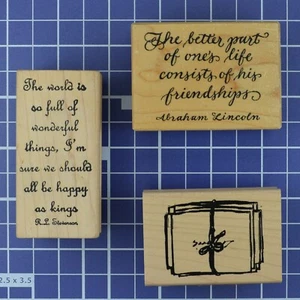 The world is
so full of
wonderful
things, I'm
sure we should
all be happy
as kings
R.L. Stevenson
The better part
of one's life
consists of his
friendships.
Abraham Lincoln
2.5 x 3.5